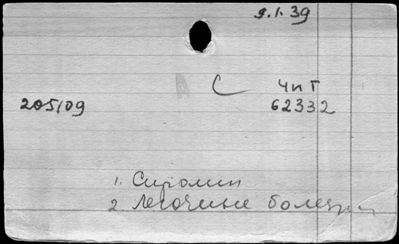 9.1.39
С ЧиГ
205109 62332
1. Сиролин
2. Легочные болезни